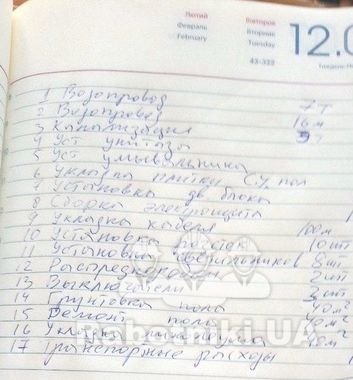 Лютий
Февраль
February
Вівторок
Вторник
Tuesday
43-323
12.0
1 Водопровод 7т
2 Водопровод 16м
3 Канализация
4 Уст унитаза
5 Уст умывальника
6 Укладка плитки С.У. пол
7 Установка дв блока
8 Сборка электрощита
9 Укладка кабеля 100м
10 Установка розеток 10шт
11 Установка светильников 8шт
12 Распредкоробки 2шт
13 Выключатели 3шт
14 Грунтовка пола 40м²
15 Ремонт пола 40м²
16 Укладка 40м²
17 Транспортные расходы
Rabotniki.UA